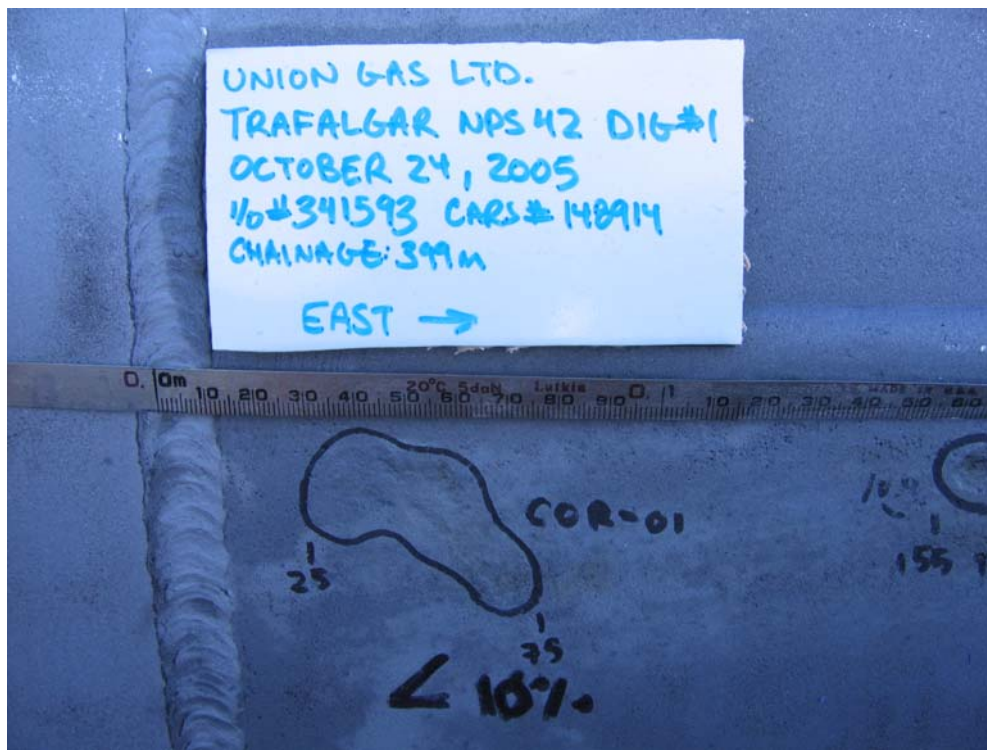 UNION GAS LTD.
TRAFALGAR NPS 42 DIG#1
OCTOBER 24, 2005
I/O#341593 CARS# 148914
CHAINAGE: 399m
EAST →
0. 0m 10 20 30 40 50 60 70 80 90 0.1 10 20 30 40 50 60
20°C 5daN Lufkin MADE IN
COR-01
25
155
75
< 10%